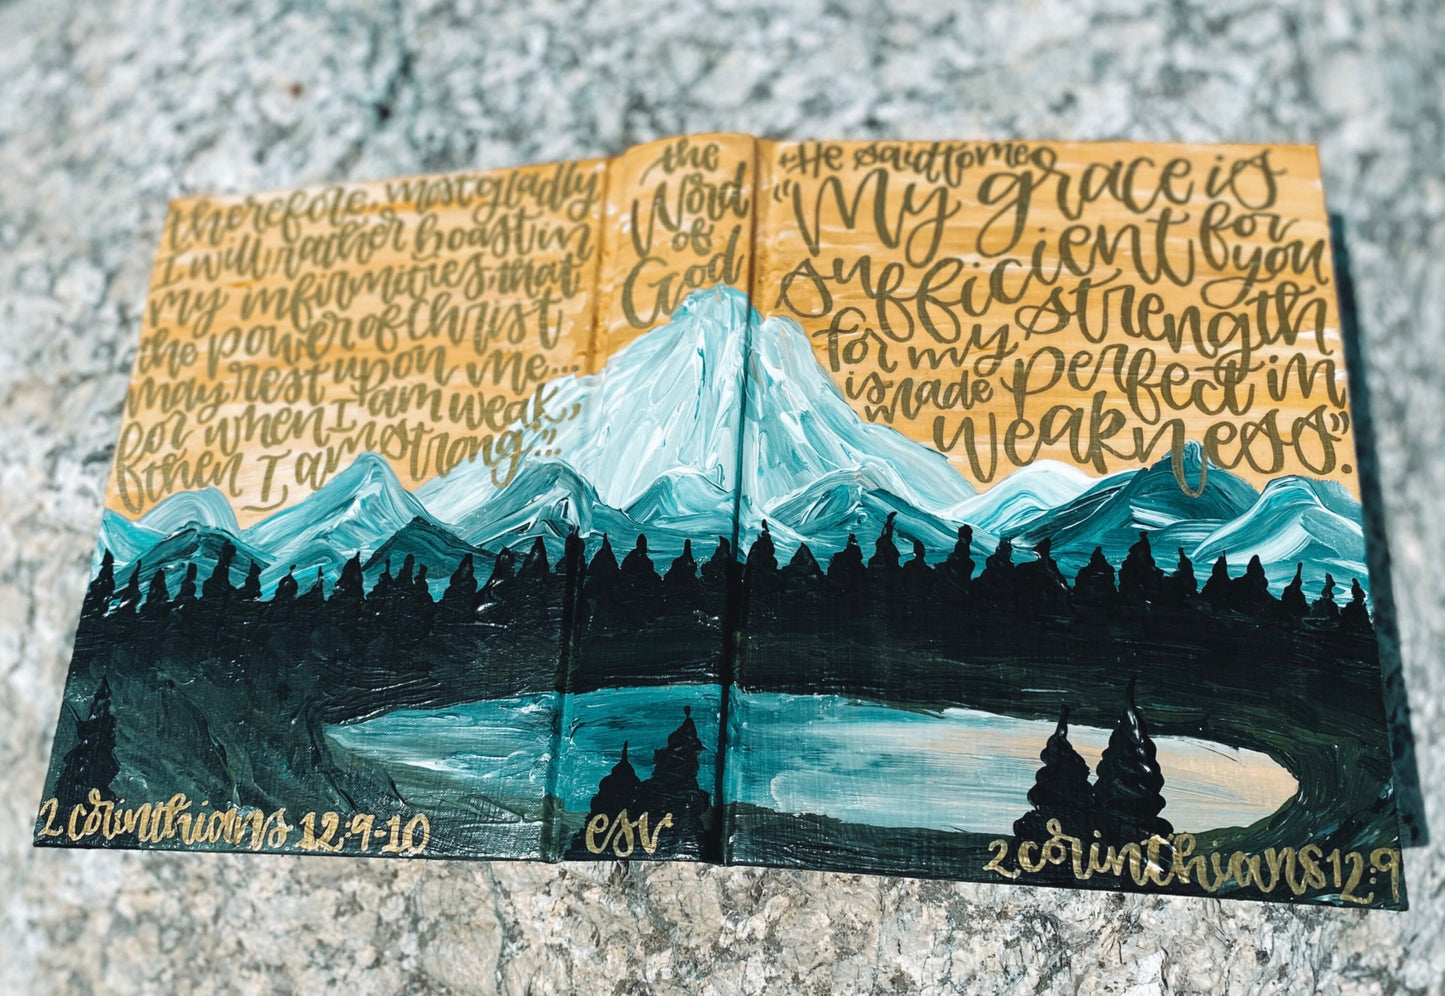 therefore, most gladly
I will rather boast in
my infirmities, that
the power of Christ
may rest upon me...
for when I am weak,
then I am strong."
2 corinthians 12:9-10
the
Word
of
God
esv
+He said to me
"My grace is
sufficient for you
for my strength
is made perfect in
weakness".
2 corinthians 12:9